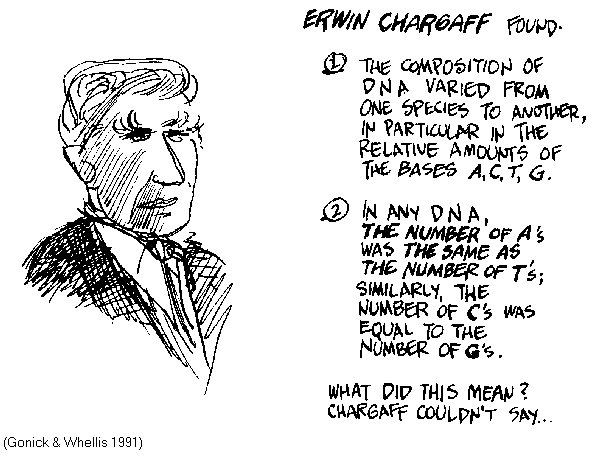 ERWIN CHARGAFF FOUND.
1 THE COMPOSITION OF
DNA VARIED FROM
ONE SPECIES TO ANOTHER,
IN PARTICULAR IN THE
RELATIVE AMOUNTS OF
THE BASES A,C,T,G.
2 IN ANY DNA,
THE NUMBER OF A's
WAS THE SAME AS
THE NUMBER OF T's;
SIMILARLY, THE
NUMBER OF C's WAS
EQUAL TO THE
NUMBER OF G's.
WHAT DID THIS MEAN?
CHARGAFF COULDN'T SAY...
(Gonick & Whellis 1991)